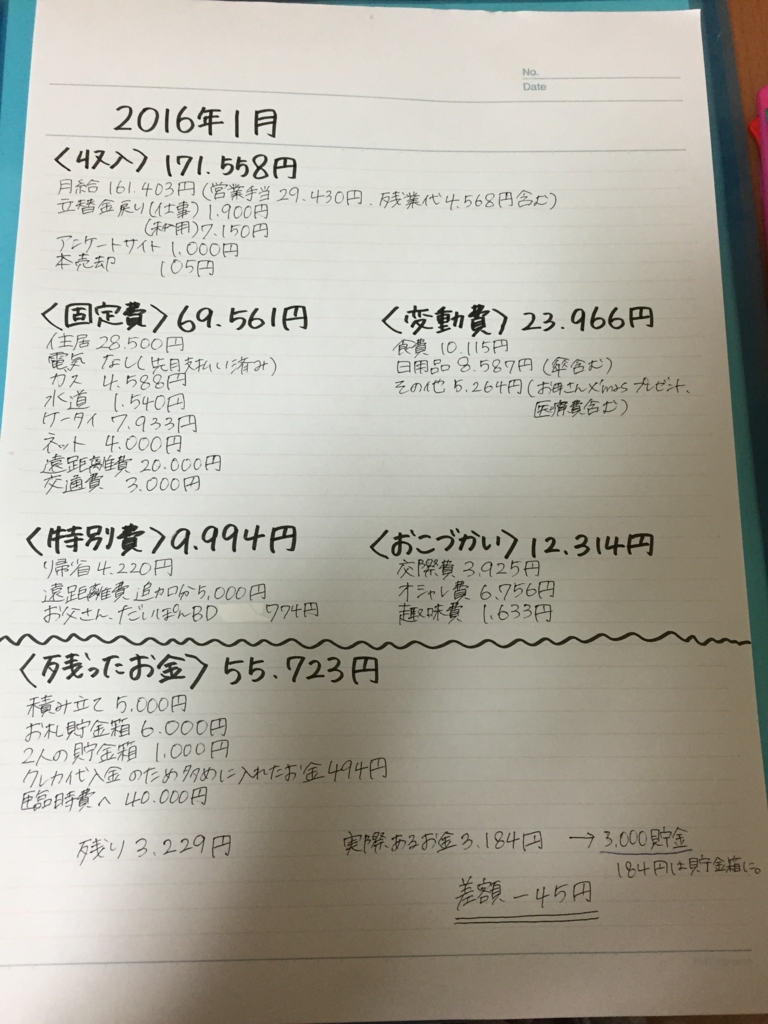 No.
Date
2016年1月
〈収入〉171.558円
月給 161.403円(営業手当 29.430円、残業代 4.568円含む)
立替金戻り(仕事) 1.900円
(利用) 7.150円
アンケートサイト 1.000円
本売却 105円
〈固定費〉69.561円
住居 28.500円
電気 なし(先月支払い済み)
ガス 4.588円
水道 1.540円
ケータイ 7.933円
ネット 4.000円
遠距離費 20.000円
交通費 3.000円
〈変動費〉23.966円
食費 10.115円
日用品 8.587円(傘含む)
その他 5.264円(お母さんX'masプレゼント、
医療費含む)
〈特別費〉9.994円
帰省 4.220円
遠距離費 追加分 5,000円
お父さん、だいぽんBD 774円
〈おこづかい〉12.314円
交際費 3.925円
オシャレ費 6.756円
趣味費 1.633円
〈残ったお金〉55.723円
積み立て 5.000円
お札貯金箱 6.000円
2人の貯金箱 1.000円
クレカ代入金のため多めに入れたお金 494円
臨時費へ 40.000円
残り 3.229円
実際あるお金 3.184円 → 3.000貯金
184円は貯金箱に。
差額 -45円